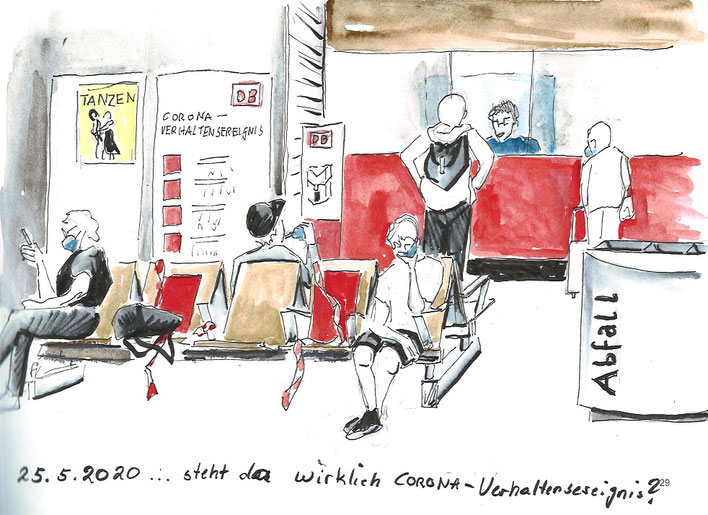 TANZEN
DB
CORONA-
VERHALTENSEREIGNIS
DB
Abfall
25.5.2020 ... steht da wirklich CORONA-Verhaltensereignis?
29